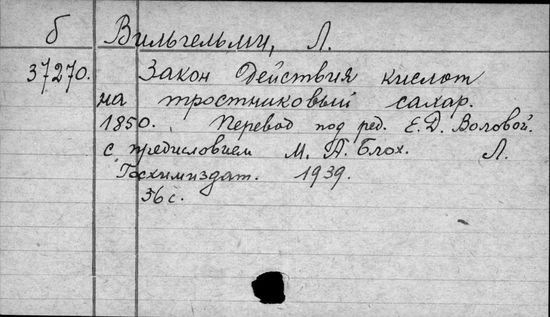 б Вильгельми, Л.
37270. Закон действия кислот
на тростниковый сахар.
1850. Перевод под ред. Е.Д. Воловой.
с предисловием М. А. Блох. Л.
Госхимиздат. 1939.
56 с.